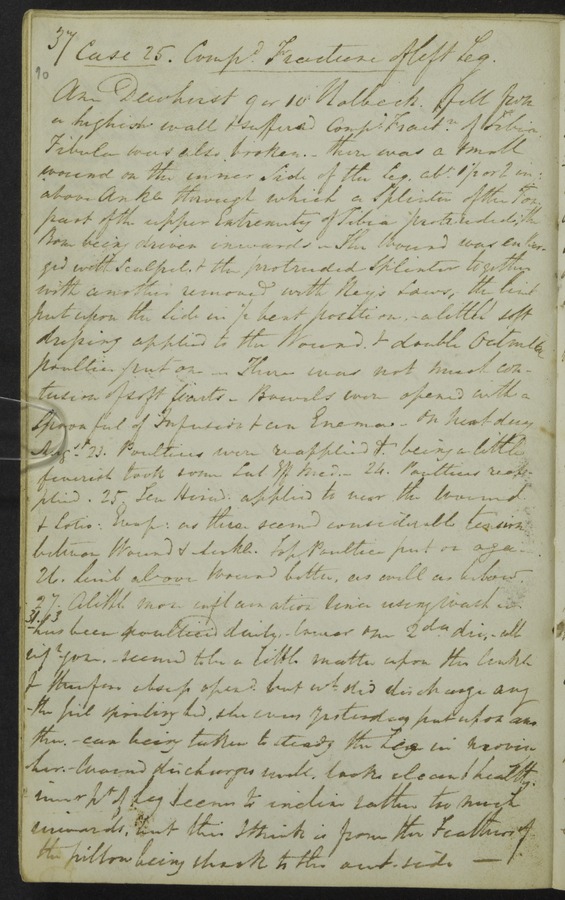 37 Case 25. Comp.d Fracture of left Leg.
70
Ann Dewhirst 9 or 10 Holbeck. Fell from
a highish wall & suffered Comp.d Fract.re of Tibia
Fibula was also broken. - there was a small
wound on the inner Side of the leg, abt 1 or 2 in:
above Ankle through which a Splinter of the
part of the upper Extremity of Tibia protruded; the
Bone being driven inwards - The wound was enlar-
ged with Scalpel, & the protruded Splinter together
with another removed with Hey's Saws, the limb
put upon the Side in a bent position, - a little soft
dressing applied to the Wound, & double Oatmeal
poultice put on - There was not much con-
tusion of soft parts - Bowels were opened with a
Spoonful of Infusion & an Enema. - On next day
Aug.st 23. Poultices were reapplied & being a little
feverish took some Sal Eff Med. - 24. Poultices reap-
plied. 25. Leeches applied to near the wound
& Lotio: Evap: as there seemed considerable tension
between Wound & Ankle. Poultice put on again
26. limb above wound better, as well as below.
27. A little more inflammation since using wash
31. has been poulticed daily, - 2da die, - all
seemed to be a little matter upon the Ankle
& therefore opened but did discharge any
the girl she was yesterday put upon ano
ther, - care being taken to steady the Leg in moving
her. - Wound discharges well, looks clean & healthy.
inner pt of leg seems to incline rather too much
inwards, but this I think is from the Feathers of
the pillow being shook to the out-side -